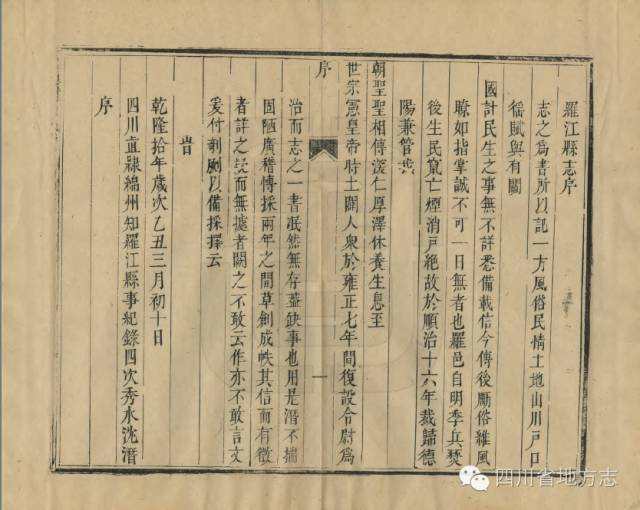 羅江縣志序
志之為書所以記一方風俗民情土地山川戶口
徭賦與有關
國計民生之事無不詳悉備載信今傳後勵俗維風
瞭如指掌誠不可一日無者也羅邑自明季兵燹
後生民竄亡煙消戶絶故於順治十六年裁歸德
陽兼管我
朝聖聖相傳深仁厚澤休養生息至
世宗憲皇帝時土闢人衆於雍正七年間復設令尉為
序
一
治而志之一書泯然無存蓋缺事也用是潛不揣
固陋廣稽博採兩年之間草創成帙其信而有徵
者詳之疑而無據者闕之不敢云作亦不敢言文
爰付剞劂以備採擇云
旹
乾隆拾年歲次乙丑三月初十日
四川直隸綿州知羅江縣事紀錄四次秀水沈潛
序
四川省地方志